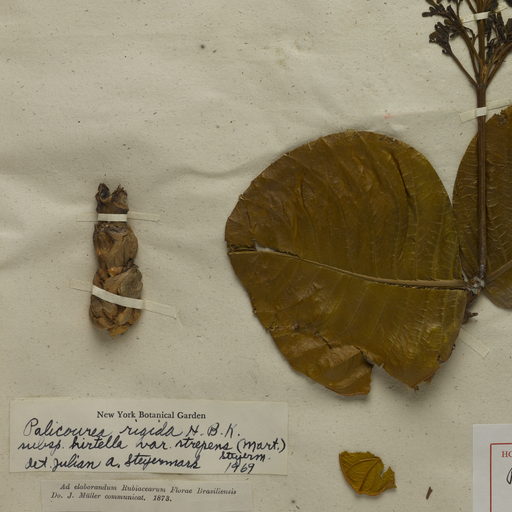 New York Botanical Garden
Palicourea rigida H.B.K.
subsp. hirtella var. strepens (Mart.)
Steyerm.
det. Julian A. Steyermark 1969
Ad elaborandum Rubiacearum Florae Brasiliensis
Do. J. Müller communicat. 1873.
HO